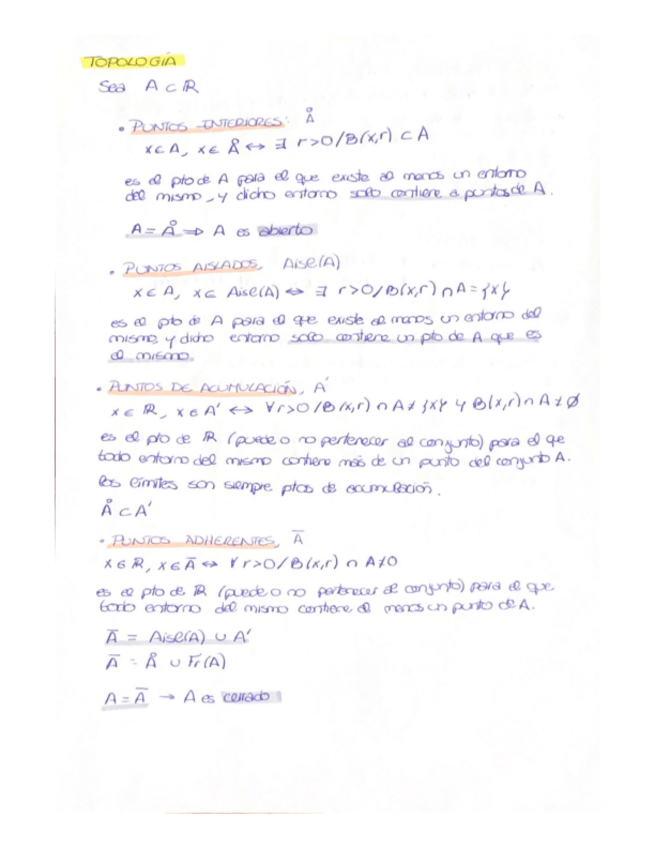 TOPOLOGÍA
Sea A ⊂ ℝ
• PUNTOS INTERIORES: Å
x ∈ A, x ∈ Å ↔ ∃ r>0/B(x,r) ⊂ A
es el pto de A para el que existe al menos un entorno
del mismo, y dicho entorno solo contiene a puntos de A.
A = Å ⇒ A es abierto
• PUNTOS AISLADOS, Aisl(A)
x ∈ A, x ∈ Aisl(A) ↔ ∃ r>0/B(x,r) ∩ A = {x}
es el pto de A para el que existe al menos un entorno del
mismo, y dicho entorno solo contiene un pto de A que es
el mismo.
• PUNTOS DE ACUMULACIÓN, A'
x ∈ ℝ, x ∈ A' ↔ ∀r>0/B(x,r) ∩ A ≠ {x} y B(x,r) ∩ A ≠ ∅
es el pto de ℝ (puede o no pertenecer al conjunto) para el que
todo entorno del mismo contiene más de un punto del conjunto A.
los límites son siempre ptos de acumulación.
Å ⊂ A'
• PUNTOS ADHERENTES, A̅
x ∈ ℝ, x ∈ A̅ ↔ ∀r>0/B(x,r) ∩ A ≠ 0
es el pto de ℝ (puede o no pertenecer al conjunto) para el que
todo entorno del mismo contiene al menos un punto de A.
A̅ = Aisl(A) ∪ A'
A̅ = Å ∪ Fr(A)
A = A̅ → A es cerrado